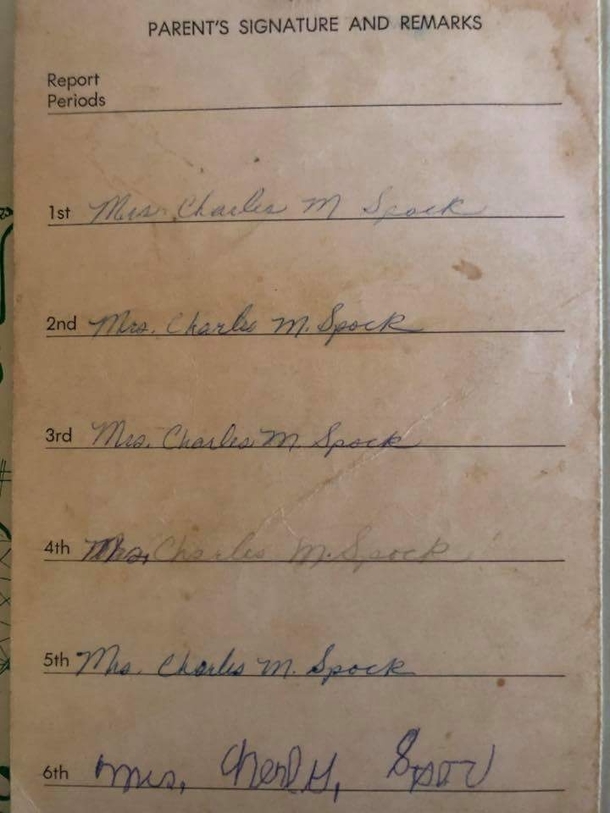 PARENT'S SIGNATURE AND REMARKS
Report
Periods
1st Mrs. Charles M Spock
2nd Mrs. Charles M. Spock
3rd Mrs. Charles M. Spock
4th Mrs. Charles M. Spock
5th Mrs. Charles M. Spock
6th Mrs,